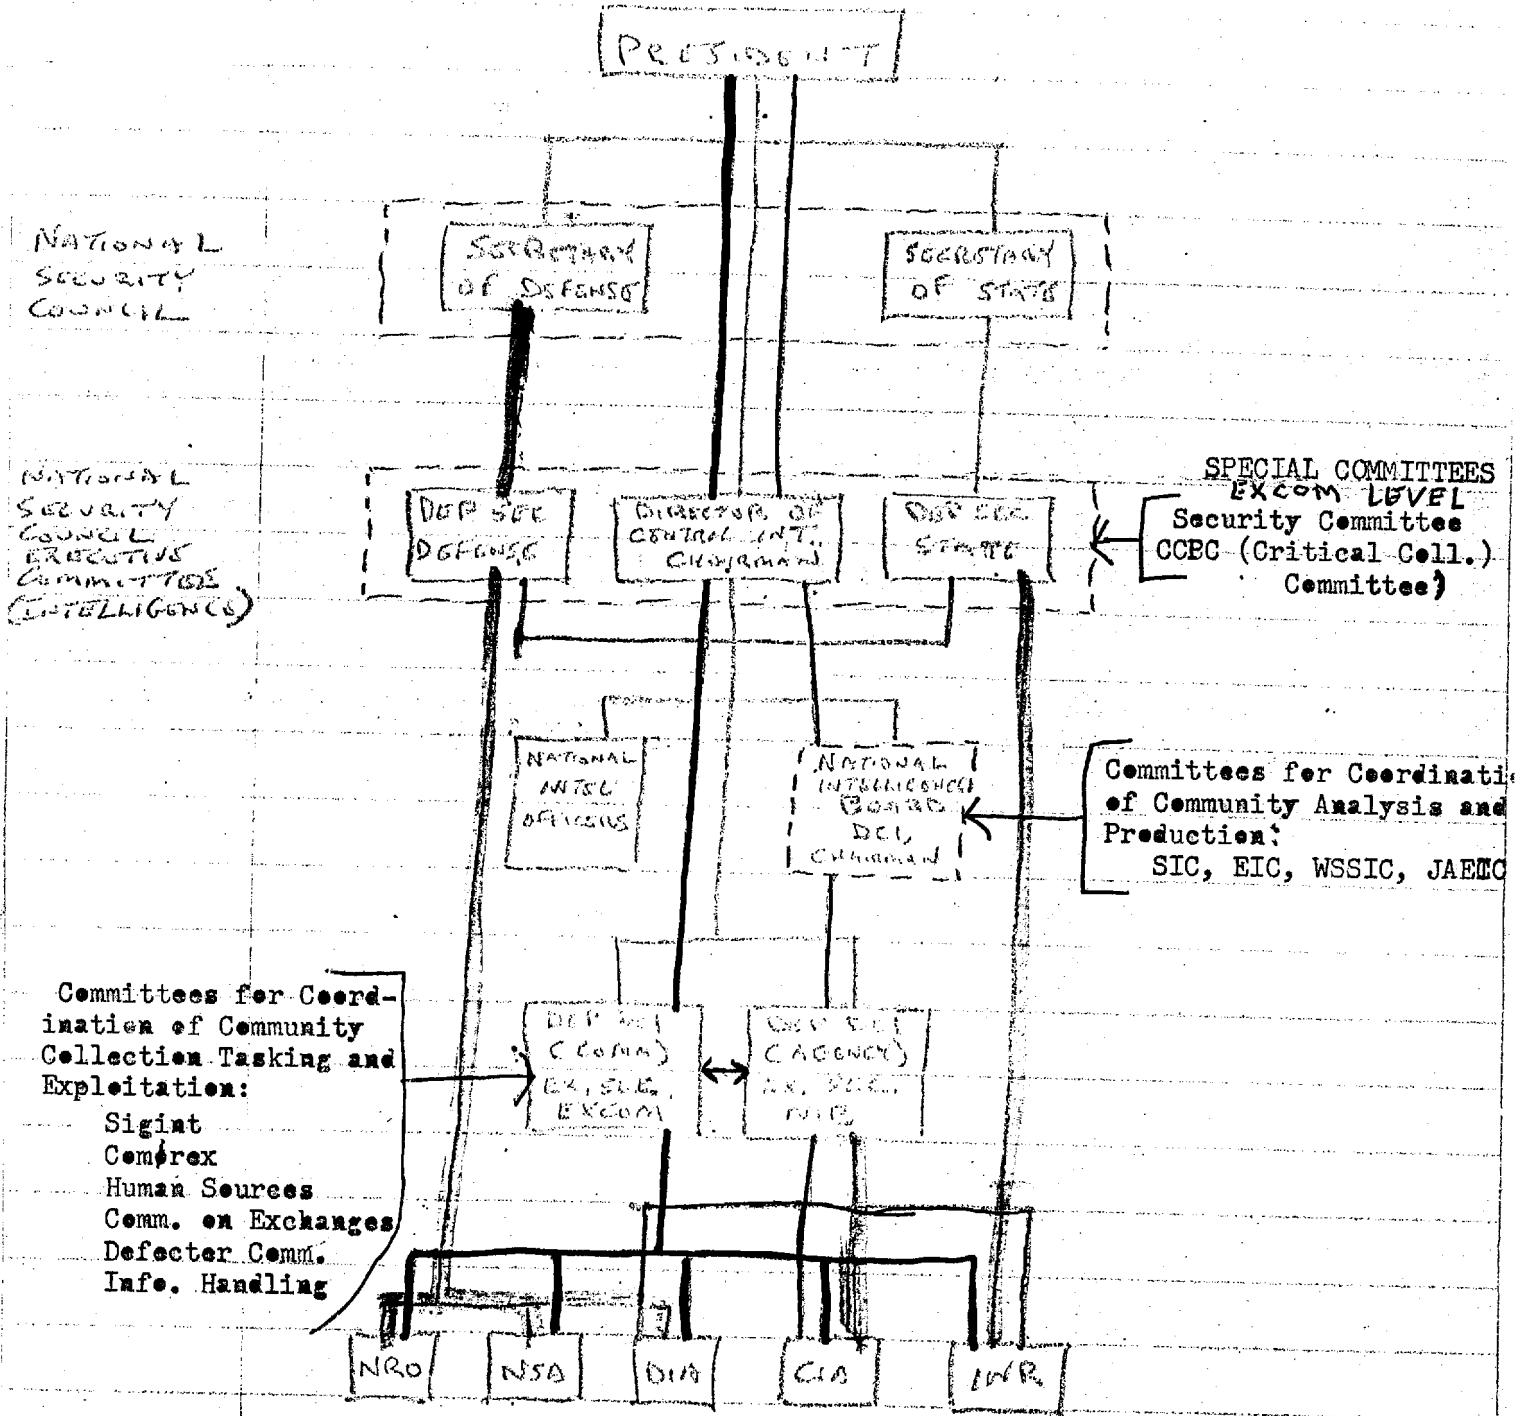 PRESIDENT
NATIONAL
SECURITY
COUNCIL
SECRETARY
OF DEFENSE
SECRETARY
OF STATE
NATIONAL
SECURITY
COUNCIL
EXECUTIVE
COMMITTEE
(INTELLIGENCE)
DEP SEC
DEFENSE
DIRECTOR OF
CENTRAL INT.
CHAIRMAN
DEP SEC
STATE
SPECIAL COMMITTEES
EXCOM LEVEL
Security Committee
CCPC (Critical Coll.)
Committee)
NATIONAL
INTEL
OFFICERS
NATIONAL
INTELLIGENCE
BOARD
DCI,
CHAIRMAN
Committees for Coordinati
of Community Analysis and
Production:
SIC, EIC, WSSIC, JAEIC
Committees for Coord-
ination of Community
Collection Tasking and
Exploitation:
Sigint
Comirex
Human Sources
Comm. on Exchanges
Defector Comm.
Info. Handling
DEP DCI
(COMM)
EX. SEC.
EXCOM
DEP DCI
(AGENCY)
EX. SEC.
NIB
NRO
NSA
DIA
CIA
INR